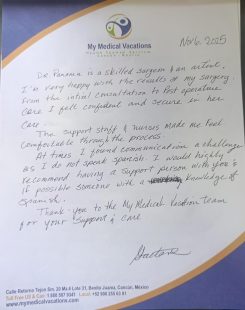 My Medical Vacations
Nov 6. 2025
Dr Panama is a skilled surgeon & an artist.
I'm very happy with the results of my surgery.
From the intial consultation to Post operative
care I felt confident and secure in her
care.
The support staff & nurses made me feel
comfortable through the process.
At times I found communication a challenge
as I do not speak spanish. I would highly
recommend having a support person with you & 
if possible someone with a knowledge of
Spanish.
Thank-you to the My Medical Vacation team
for your support & care
Calle Retorno Tejon Sm. 20 Mz.4 Lote 21, Benito Juarez, Cancún, México
Toll Free US & Can
www.mymedicalvacations.com